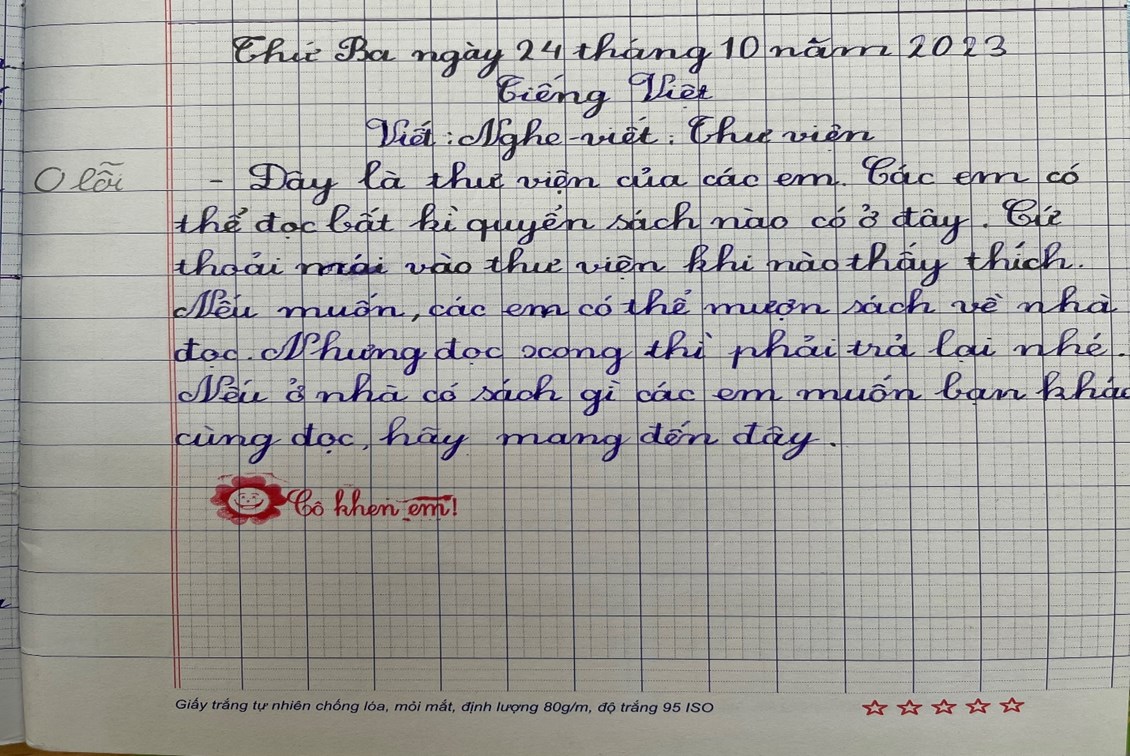 Thứ Ba ngày 24 tháng 10 năm 2023
Tiếng Việt
Viết: Nghe-viết: Thư viện
0 lỗi
- Đây là thư viện của các em. Các em có
thể đọc bất kì quyển sách nào có ở đây. Cứ
thoải mái vào thư viện khi nào thấy thích.
Nếu muốn, các em có thể mượn sách về nhà
đọc. Nhưng đọc xong thì phải trả lại nhé.
Nếu ở nhà có sách gì các em muốn bạn khác
cùng đọc, hãy mang đến đây.
Cô khen em!
Giấy trắng tự nhiên chống lóa, mỏi mắt, định lượng 80g/m, độ trắng 95 ISO